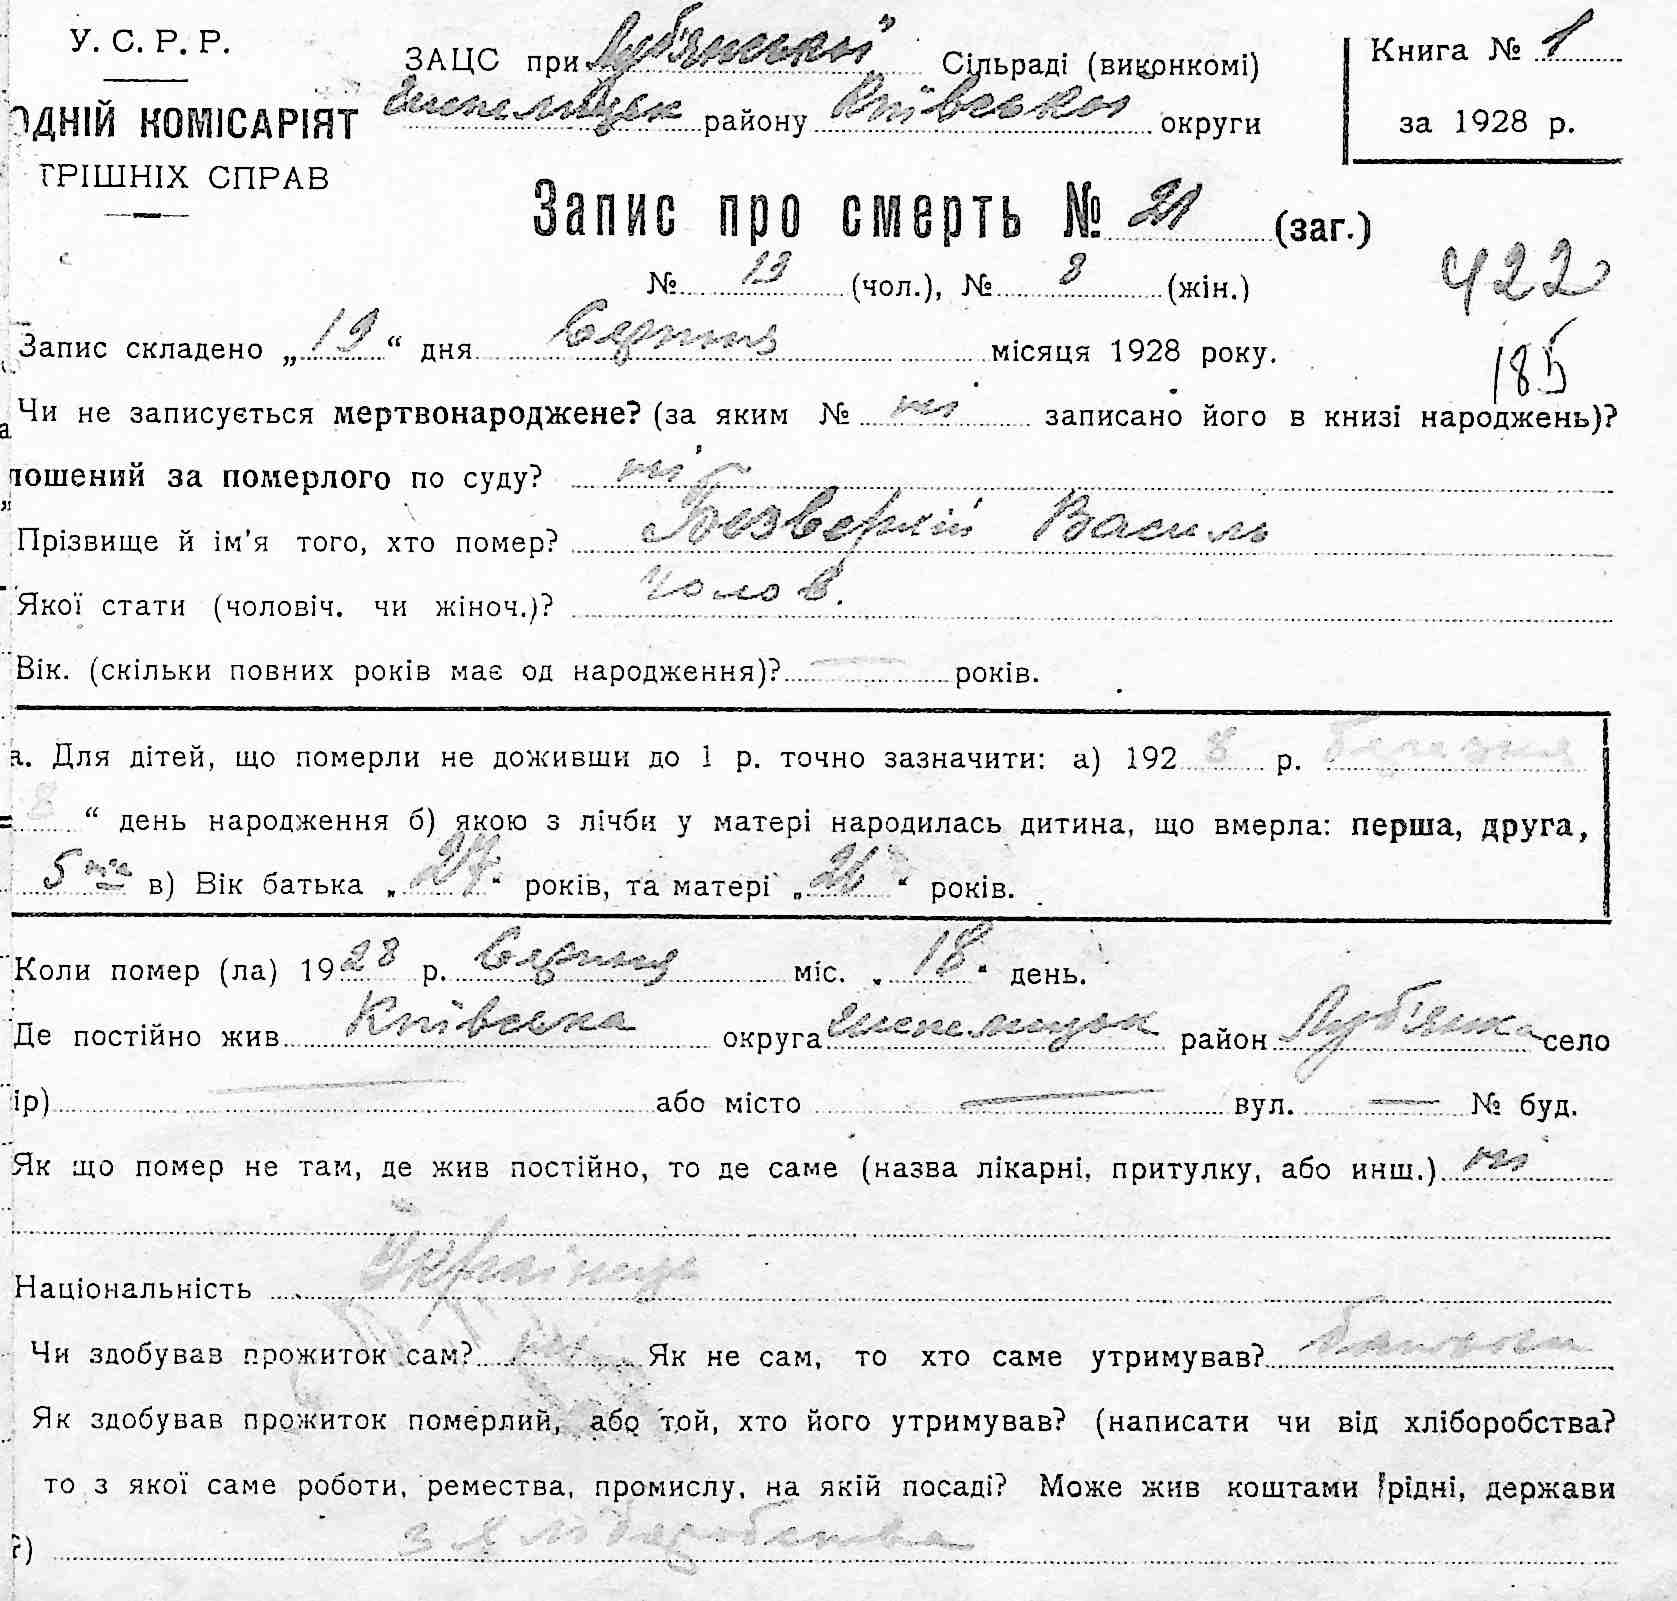 У. С. Р. Р.
ОДНІЙ КОМІСАРІЯТ
ТРІШНІХ СПРАВ
ЗАЦС при Луб'янській Сільраді (виконкомі)
району Київської округи
Книга № 1
за 1928 р.
Запис про смерть № 21 (заг.)
№ 13 (чол.), № 8 (жін.)
422
Запис складено „19“ дня Серпня місяця 1928 року.
185
Чи не записується мертвонароджене? (за яким № ні записано його в книзі народжень)?
лошений за померлого по суду? ні
Прізвище й ім'я того, хто помер? Безверхій Василь
Якої стати (чоловіч. чи жіноч.)? чолов.
Вік. (скільки повних років має од народження)? — років.
а. Для дітей, що померли не доживши до 1 р. точно зазначити: а) 1928 р. березня
8 “ день народження б) якою з лічби у матері народилась дитина, що вмерла: перша, друга,
5та в) Вік батька „27“ років, та матері „26“ років.
Коли помер (ла) 1928 р. Серпня міс. „18“ день.
Де постійно жив Київська округа район Луб'янка село
ір) — або місто — вул. — № буд.
Як що помер не там, де жив постійно, то де саме (назва лікарні, притулку, або инш.) ні
Національність Українець
Чи здобував прожиток сам? Як не сам, то хто саме утримував? батьки
Як здобував прожиток померлий, або той, хто його утримував? (написати чи від хліборобства?
то з якої саме роботи, ремества, промислу, на якій посаді? Може жив коштами рідні, держави
?) з хліборобства